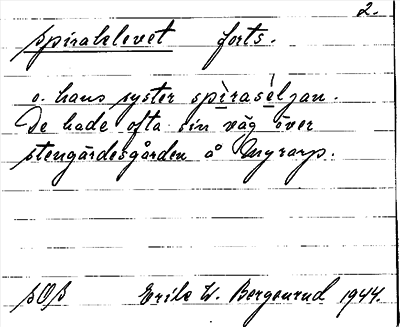 2.
spiraklevet forts.
o. hans syster spìrasèljan.
De hade ofta sin väg över
stengärdesgården å Myrarp.
SOS Erik W. Bergenrud 1944.